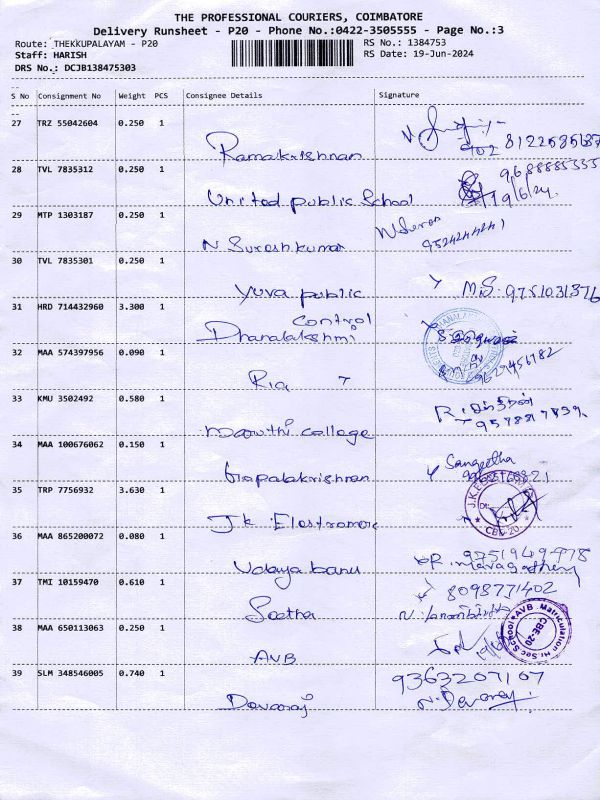 THE PROFESSIONAL COURIERS, COIMBATORE
Delivery Runsheet - P20 - Phone No.:0422-3505555 - Page No.:3
Route: THEKKUPALAYAM - P20 RS No.: 1384753
Staff: HARISH RS Date: 19-Jun-2024
DRS No.: DCJB138475303
S No Consignment No Weight PCS Consignee Details Signature
27 TRZ 55042604 0.250 1
Ramakrishnan
28 TVL 7835312 0.250 1
United public School 19/6/24.
29 MTP 1303187 0.250 1
N Sureshkumar
30 TVL 7835301 0.250 1
Yuva public M.S. 9751031876
31 HRD 714432960 3.300 1
Control
Dhanalakshmi
32 MAA 574397956 0.090 1
Ria 9629456782
33 KMU 3502492 0.580 1
college
34 MAA 100676062 0.150 1
Gopalakrishnan Sangeetha
35 TRP 7756932 3.630 1
J.k
CBE-20
36 MAA 865200072 0.080 1
Udaya banu
37 TMI 10159470 0.610 1
8098771402
Seetha
38 MAA 650113063 0.250 1
AVB
AVB Matriculation Hr Sec School
CBE-20
39 SLM 348546005 0.740 1
9363207107
Devaraj N. Devaraj